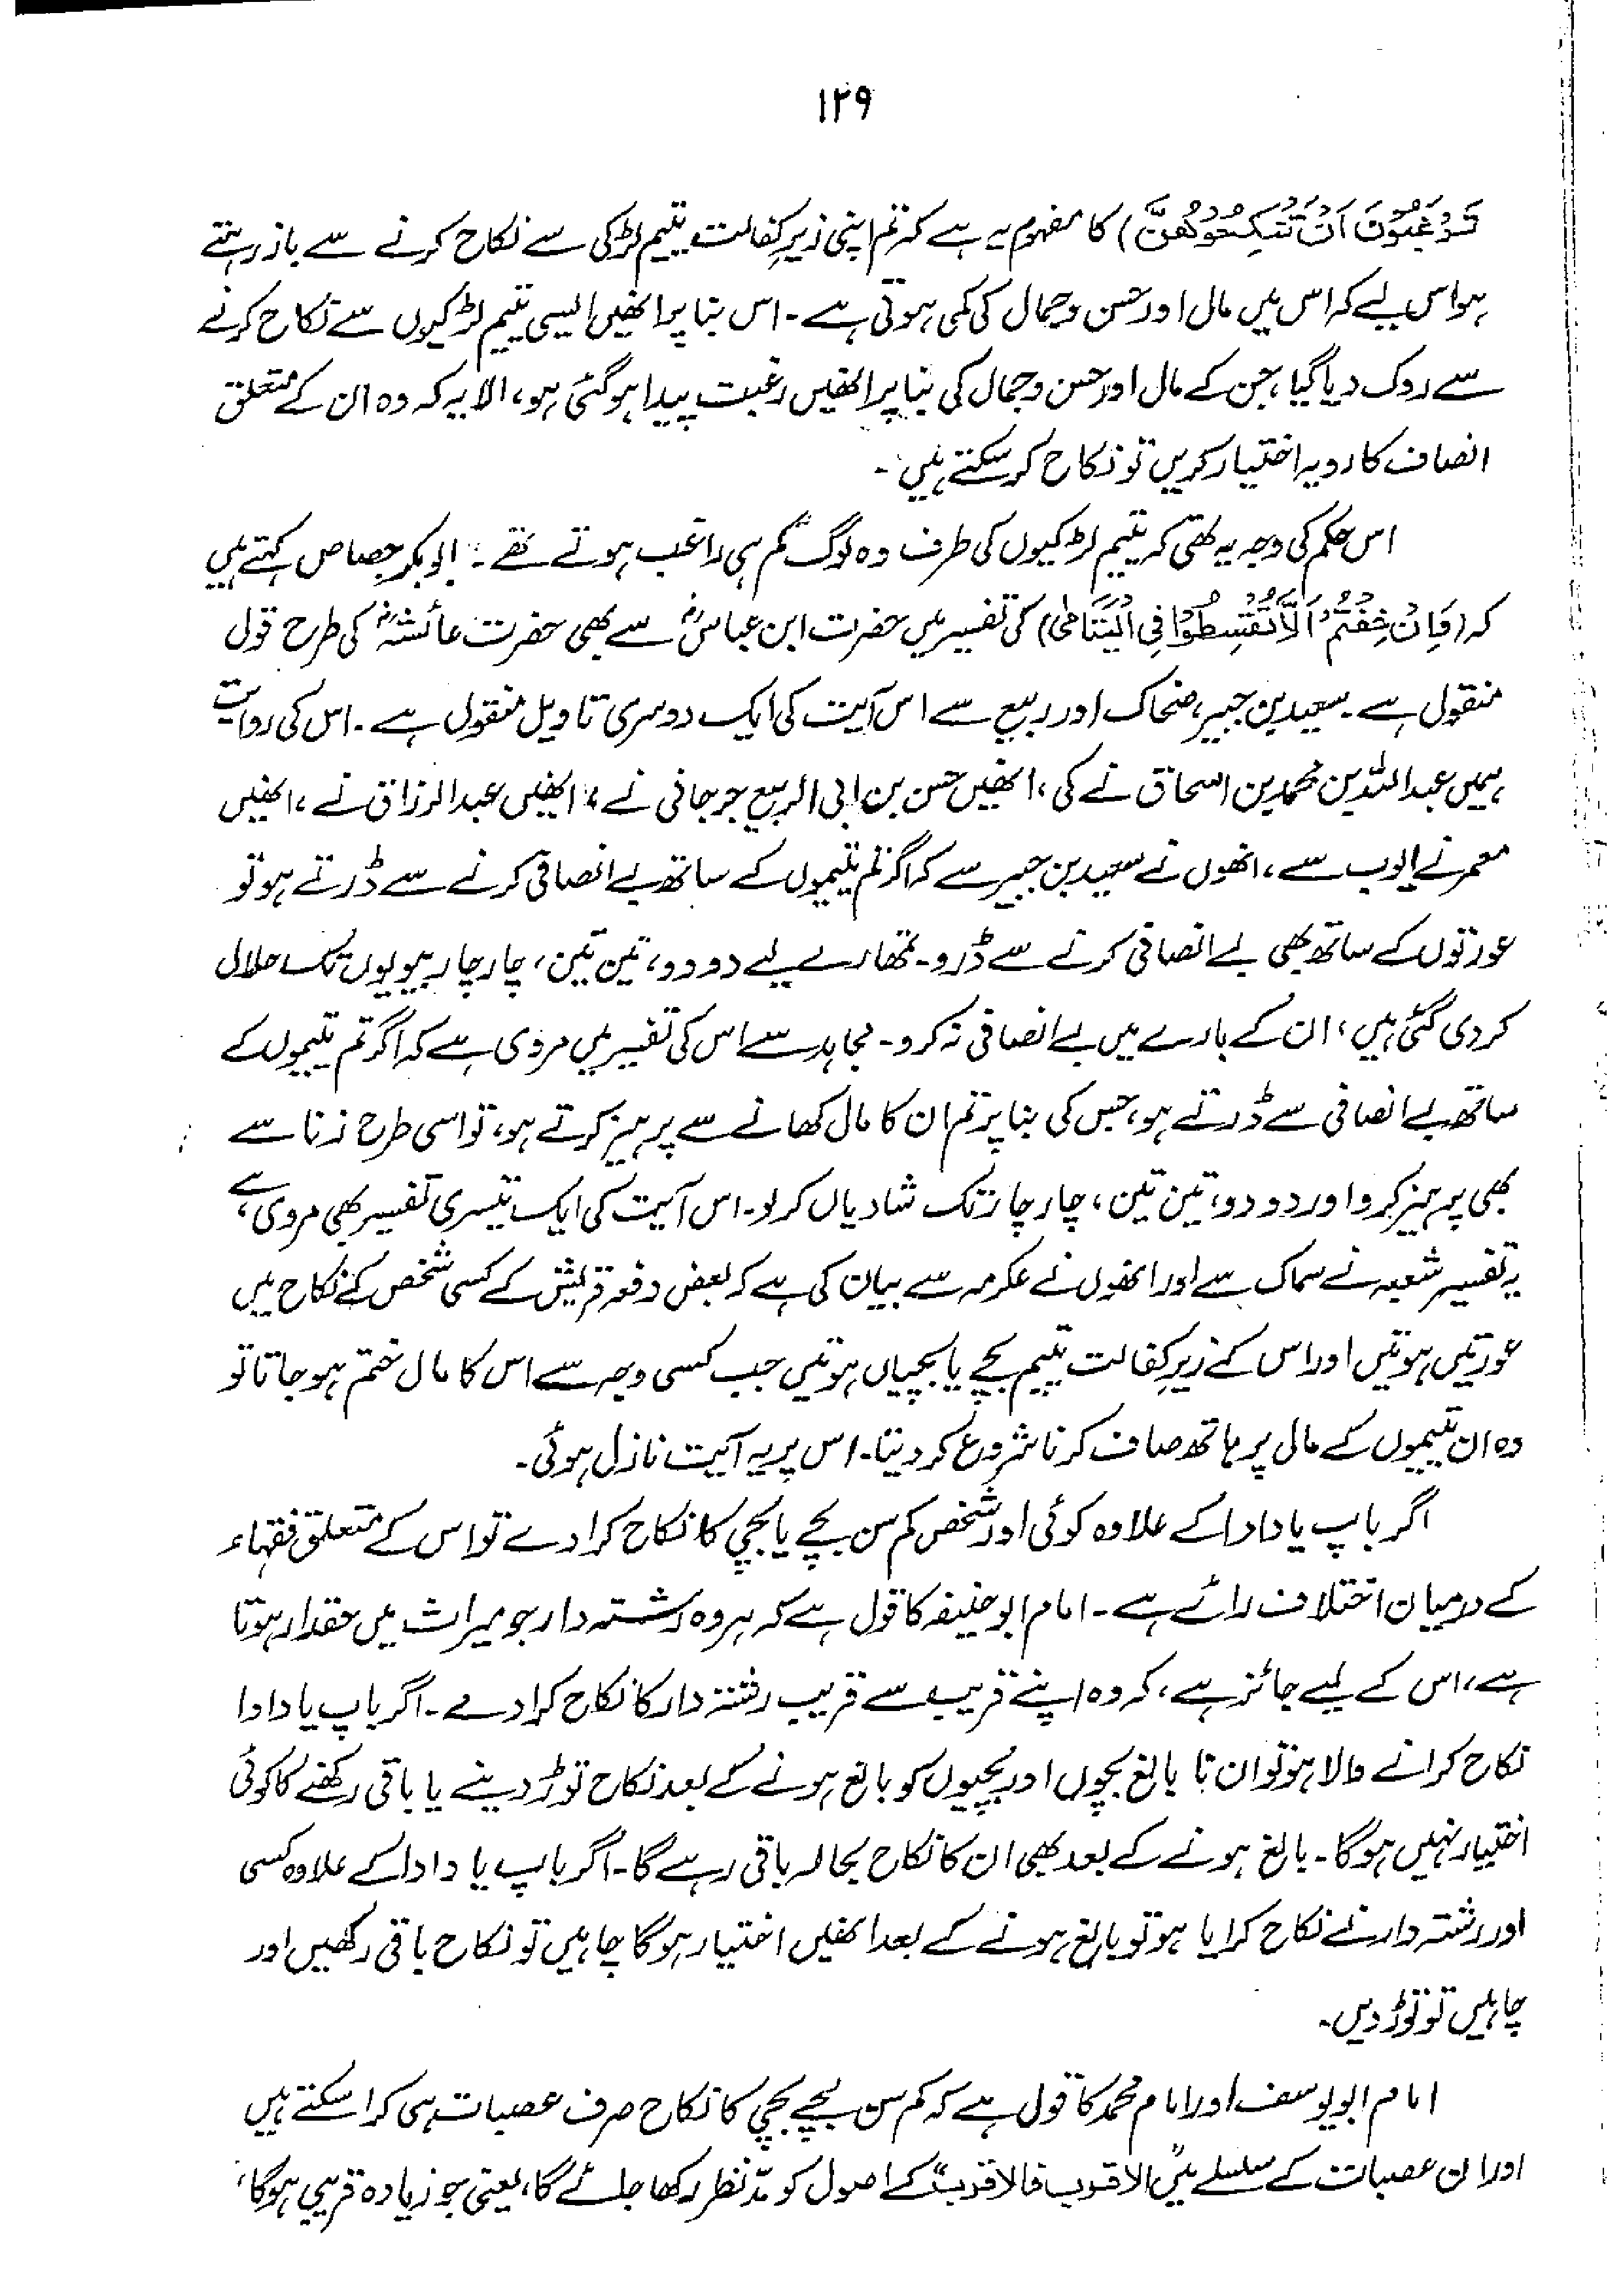 ۱۲۹
تَرْغَبُوْنَ اَنْ تَنْكِحُوْهُنَّ) کا مفہوم یہ ہے کہ تم اپنی زیرِ کفالت یتیم لڑکی سے نکاح کرنے سے باز رہتے
ہو اس لیے کہ اس میں مال اور حسن وجمال کی کمی ہوتی ہے۔ اس بنا پر انھیں ایسی یتیم لڑکیوں سے نکاح کرنے
سے روک دیا گیا، جن کے مال اور حسن وجمال کی بنا پر انھیں رغبت پیدا ہو گئی ہو، الا یہ کہ وہ ان کے متعلق
انصاف کا رویہ اختیار کریں تو نکاح کر سکتے ہیں۔
اس حکم کی وجہ یہ تھی کہ یتیم لڑکیوں کی طرف وہ لوگ کم ہی راغب ہوتے تھے۔ ابوبکر جصاص کہتے ہیں
کہ (فَاِنْ خِفْتُمْ اَلَّا تُقْسِطُوْا فِی الْیَتَامٰی) کی تفسیر میں حضرت ابن عباسؓ سے بھی حضرت عائشہؓ کی طرح قول
منقول ہے۔ سعید بن جبیر، ضحاک اور ربیع سے اس آیت کی ایک دوسری تاویل منقول ہے۔ اس کی روایت
ہمیں عبداللہ بن محمد بن اسحاق نے کی، انھیں حسن بن ابی الربیع جرجانی نے، انھیں عبدالرزاق نے، انھیں
معمر نے ایوب سے، انھوں نے سعید بن جبیر سے کہ اگر تم یتیموں کے ساتھ بے انصافی کرنے سے ڈرتے ہو تو
عورتوں کے ساتھ بھی بے انصافی کرنے سے ڈرو۔ تمھارے لیے دو دو، تین تین، چار چار بیویوں تک حلال
کر دی گئی ہیں، ان کے بارے میں بے انصافی نہ کرو۔ مجاہد سے اس کی تفسیر میں مروی ہے کہ اگر تم یتیموں کے
ساتھ بے انصافی سے ڈرتے ہو، جس کی بنا پر تم ان کا مال کھانے سے پرہیز کرتے ہو، تو اسی طرح زنا سے
بھی پرہیز کرو اور دو دو، تین تین، چار چار تک شادیاں کر لو۔ اس آیت کی ایک تیسری تفسیر بھی مروی ہے،
یہ تفسیر شعبہ نے سماک سے اور انھوں نے عکرمہ سے بیان کی ہے کہ بعض دفعہ قریش کے کسی شخص کے نکاح میں
عورتیں ہوتیں اور اس کے زیرِ کفالت یتیم بچے یا بچیاں ہوتیں جب کسی وجہ سے اس کا مال ختم ہو جاتا تو
وہ ان یتیموں کے مال پر ہاتھ صاف کرنا شروع کر دیتا۔ اس پر یہ آیت نازل ہوئی۔
اگر باپ یا دادا کے علاوہ کوئی اور شخص کم سن بچے یا بچی کا نکاح کرا دے تو اس کے متعلق فقہاء
کے درمیان اختلاف رائے ہے۔ امام ابو حنیفہ کا قول ہے کہ ہر وہ رشتہ دار جو میراث میں حقدار ہوتا
ہے، اس کے لیے جائز ہے، کہ وہ اپنے قریب سے قریب رشتہ دار کا نکاح کرا دے۔ اگر باپ یا دادا
نکاح کرانے والا ہو تو ان نا بالغ بچوں اور بچیوں کو بالغ ہونے کے بعد نکاح توڑ دینے یا باقی رکھنے کا کوئی
اختیار نہیں ہوگا۔ بالغ ہونے کے بعد بھی ان کا نکاح بحالہ باقی رہے گا۔ اگر باپ یا دادا کے علاوہ کسی
اور رشتہ دار نے نکاح کرایا ہو تو بالغ ہونے کے بعد انھیں اختیار ہوگا چاہیں تو نکاح باقی رکھیں اور
چاہیں تو توڑ دیں۔
امام ابو یوسف اور امام محمد کا قول ہے کہ کم سن بچے بچی کا نکاح صرف عصبات ہی کرا سکتے ہیں
اور ان عصبات کے سلسلے میں "الاقرب فالاقرب" کے اصول کو مدّ نظر رکھا جائے گا، یعنی جو زیادہ قریبی ہوگا،